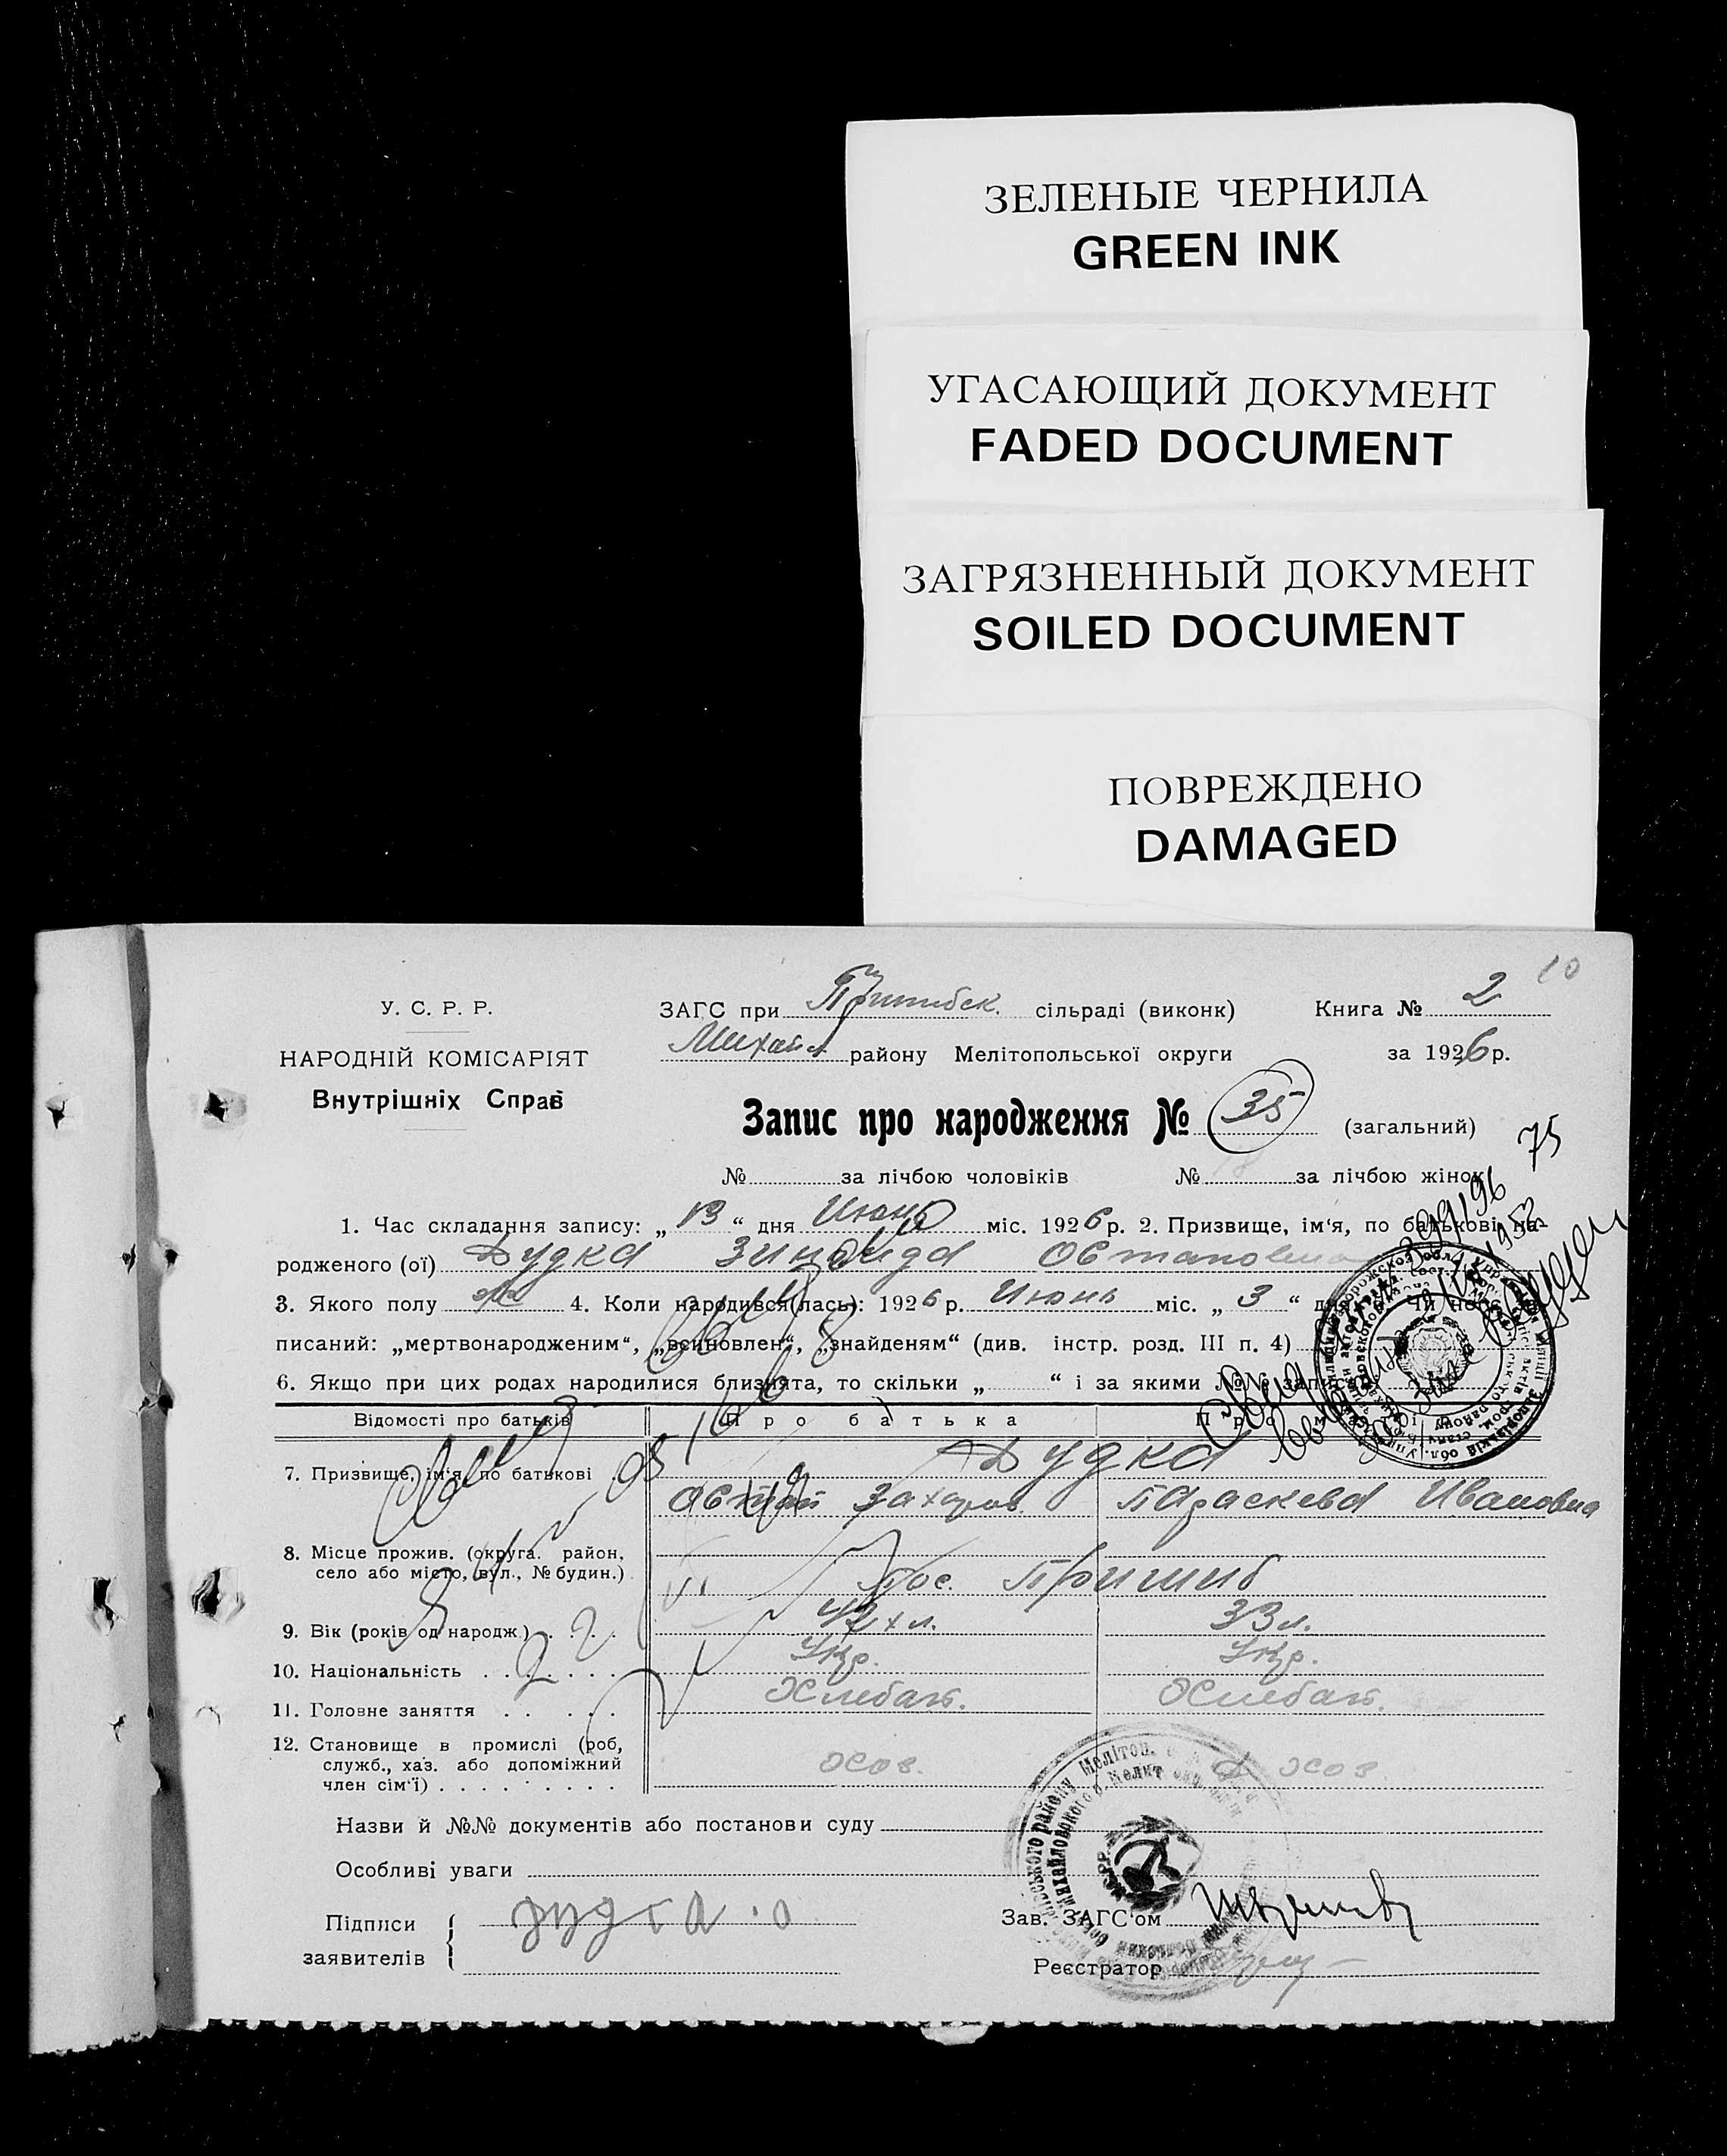 ЗЕЛЕНЫЕ ЧЕРНИЛА
GREEN INK
УГАСАЮЩИЙ ДОКУМЕНТ
FADED DOCUMENT
ЗАГРЯЗНЕННЫЙ ДОКУМЕНТ
SOILED DOCUMENT
ПОВРЕЖДЕНО
DAMAGED
10
У. С. Р. Р.
НАРОДНІЙ КОМІСАРІЯТ
Внутрішніх Справ
ЗАГС при Пришибск. сільраді (виконк) Книга № 2
Михайл району Мелітопольської округи за 1926 р.
Запис про народження № 35 (загальний)
75
№ за лічбою чоловіків № за лічбою жінок
1. Час складання запису: „ 13 “ дня Июня міс. 1926 р. 2. Призвище, ім‘я, по батькові на-
родженого (ої) Дудка Зинаида Остаповна
3. Якого полу ж 4. Коли народився(лась): 1926 р. Июнь міс. „ 3 “
писаний: „мертвонародженим“, „всиновлен“, „знайденям“ (див. інстр. розд. III п. 4)
6. Якщо при цих родах народилися близнята, то скільки „ “ і за якими №№
Відомості про батьків Про батька Про матір
7. Призвище, ім‘я, по батькові Дудка
Остап Захаров. Параскева Ивановна
8. Місце прожив. (округа. район,
село або місто, вул., № будин.) Пос. Пришиб
9. Вік (років од народж.) 42 х л. 33 л.
10. Національність Укр. Укр.
11. Головне заняття Хлебоп. Хлебоп.
12. Становище в промислі (роб,
служб., хаз. або допоміжний
член сім‘ї)
Назви й №№ документів або постанови суду
Особливі уваги
Підписи
заявителів
Зав. ЗАГС‘ом
Реєстратор